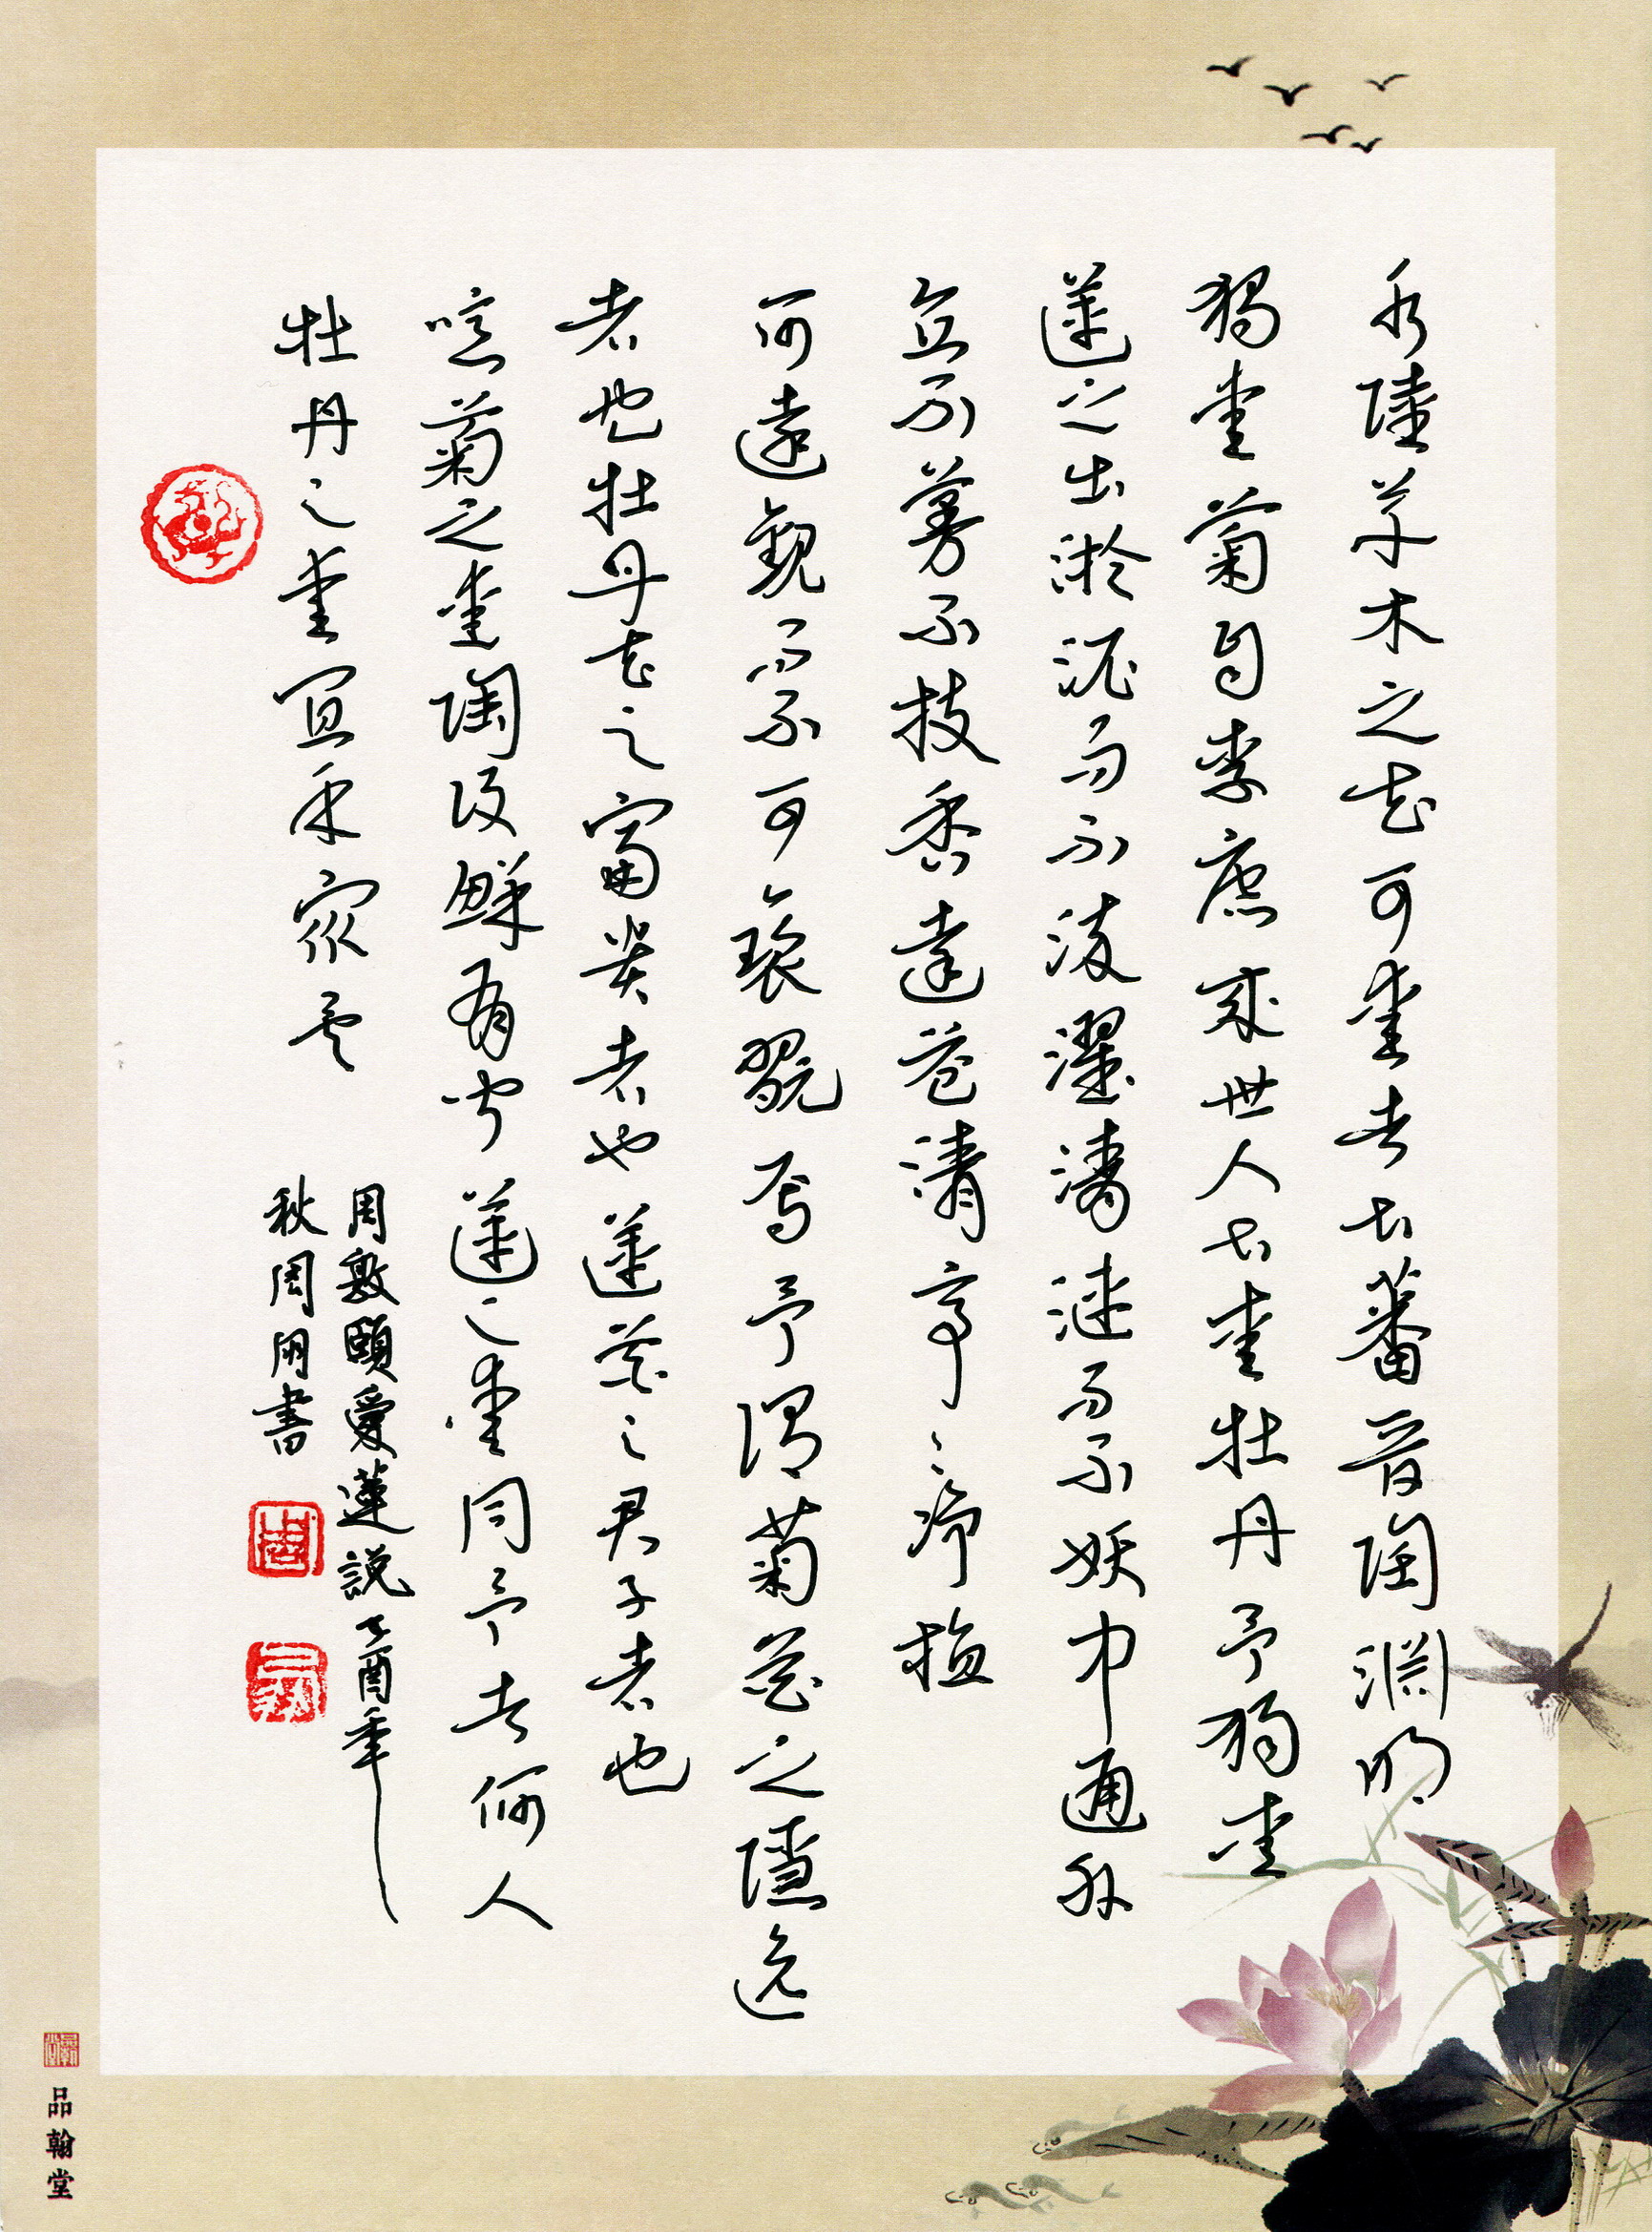 水陸草木之花可愛者甚蕃晉陶淵明
獨愛菊自李唐來世人甚愛牡丹予獨愛
蓮之出淤泥而不染濯清漣而不妖中通外
直不蔓不枝香遠益清亭々淨植
可遠觀而不可褻翫焉予謂菊花之隱逸
者也牡丹花之富貴者也蓮花之君子者也
噫菊之愛陶後鮮有聞蓮之愛同予者何人
牡丹之愛宜乎眾矣
周敦頤愛蓮説乙酉年
秋周書
品翰堂